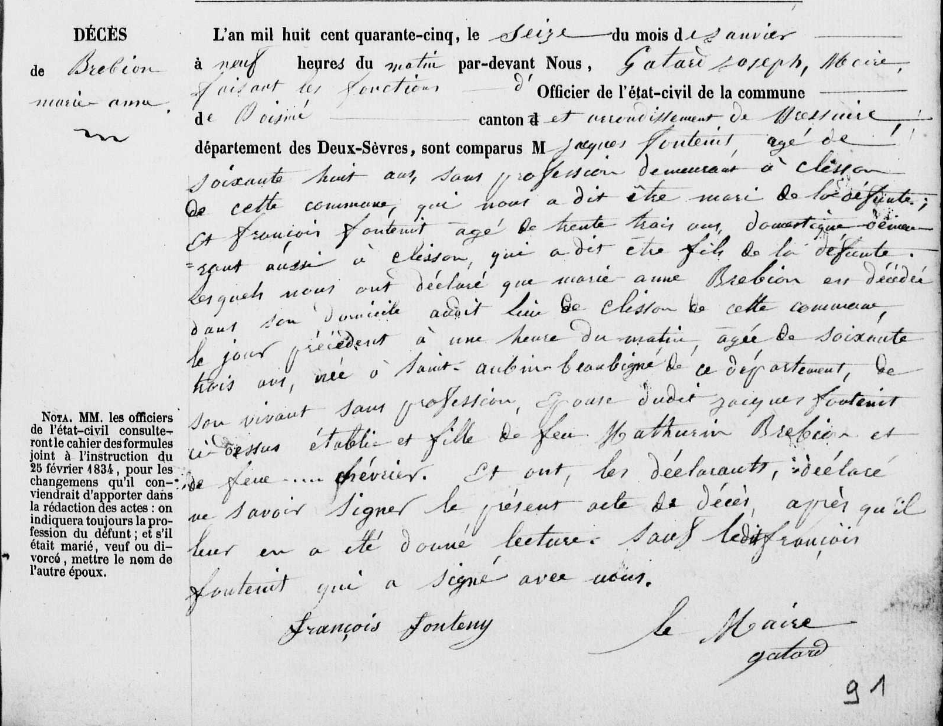 DÉCÈS
de Brebion
marie anne.
L'an mil huit cent quarante-cinq, le seize du mois de Janvier
à neuf heures du matin par-devant Nous, Gatard Joseph, Maire,
faisant les fonctions d'Officier de l'état-civil de la commune
de Boismé canton d et arrondissement de Bressuire
département des Deux-Sèvres, sont comparus M jacques fontenit, agé de
soixante huit ans, sans profession demeurant à clisson
de cette commune, qui nous a dit être mari de la défunte;
et françois fontenit agé de trente trois ans, domestique demeu
=rant aussi à clisson, qui a dit etre fils de la défunte.
lesquels nous ont déclaré que marie anne Brebion est décédée
dans son domicile audit lieu de clisson de cette commune,
le jour précédent à une heure du matin, agée de soixante
trois ans, née à saint-aubin-beaubigné de ce département, de
son vivant sans profession, épouse dudit jacques fontenit
ci dessus établi et fille de feu Mathurin Brebion et
de feue .... chévrier. Et ont, les déclarants, déclaré
ne savoir signer le présent acte de décès, après qu'il
leur en a été donné lecture. sauf ledit françois
fontenit qui a signé avec nous.
françois fonteny
le Maire
gatard
NOTA. MM. les officiers
de l'état-civil consulte-
ront le cahier des formules
joint à l'instruction du
25 février 1834, pour les
changemens qu'il con-
viendrait d'apporter dans
la rédaction des actes : on
indiquera toujours la pro-
fession du défunt ; et s'il
était marié, veuf ou di-
vorcé, mettre le nom de
l'autre époux.
91